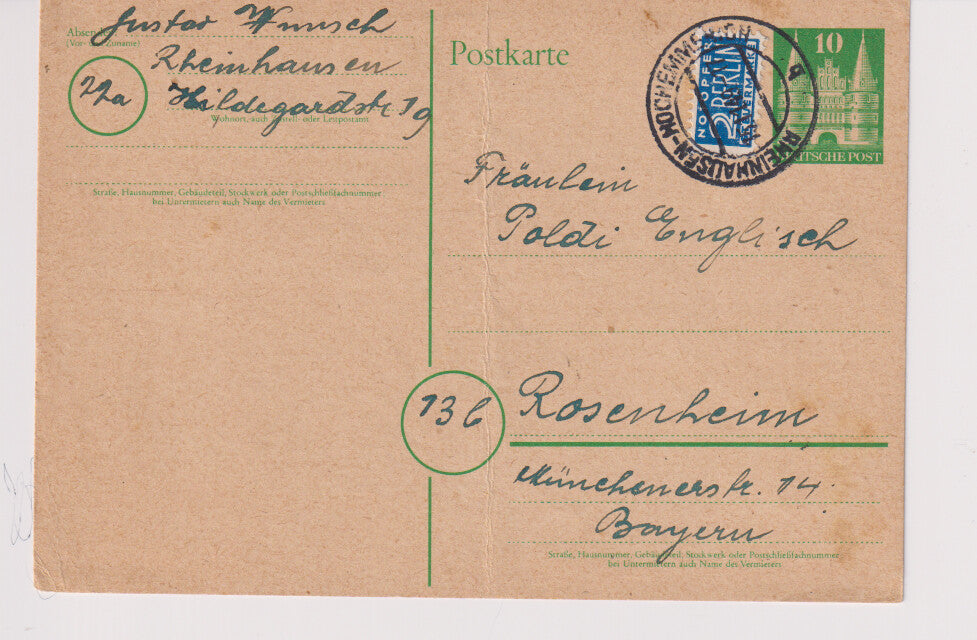 Gustav Wunsch
Absender:
(Vor- u. Zuname)
Rheinhausen
22a
Hildegardstr. 19
Wohnort, auch Zustell- oder Leitpostamt
Straße, Hausnummer, Gebäudeteil, Stockwerk oder Postschließfachnummer
bei Untermietern auch Name des Vermieters
Postkarte
NOTOPFER
2 BERLIN
STEUERMARKE
RHEINHAUSEN-HOCHEMMERICH
10
DEUTSCHE POST
Fräulein
Poldi Englisch
13b
Rosenheim
Münchenerstr. 14.
Bayern
Straße, Hausnummer, Gebäudeteil, Stockwerk oder Postschließfachnummer
bei Untermietern auch Name des Vermieters